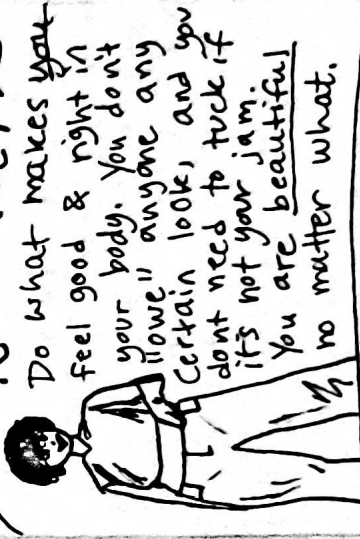 Do what makes you
feel good & right in
your body. You don't
"owe" anyone any
certain look, and you
dont need to tuck if
it's not your jam.
You are beautiful
no matter what.